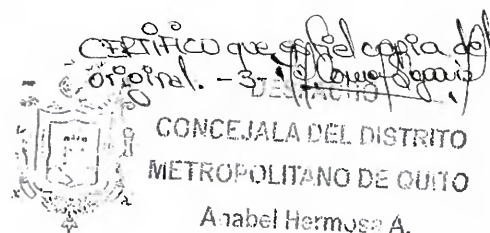 CERTIFICO que es fiel copia del
original. - 3 -
DESPACHO
CONCEJALA DEL DISTRITO
METROPOLITANO DE QUITO
Anabel Hermosa A.